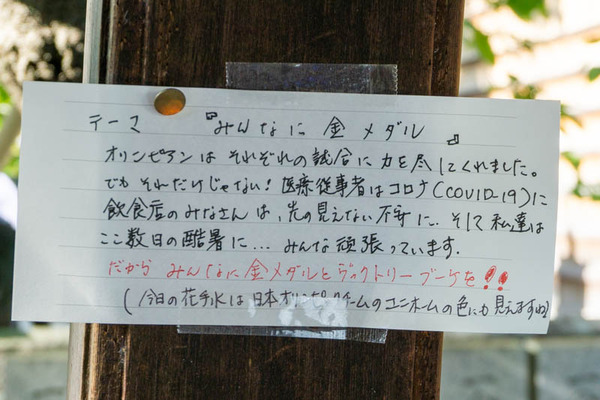 テーマ 『みんなに 金 メダル 』
オリンピアンは それぞれの試合に 力を尽してくれました。
でも それだけじゃない! 医療従事者はコロナ(COVID-19)に
飲食店のみなさんは、先の見えない不安に… そして 私達は
ここ数日の酷暑に… みんな頑張っています.
だから みんなに金メダルとヴィクトリーブーケを!!
(今日の花手水は日本オリンピックチームのユニホームの色にも見えますね)